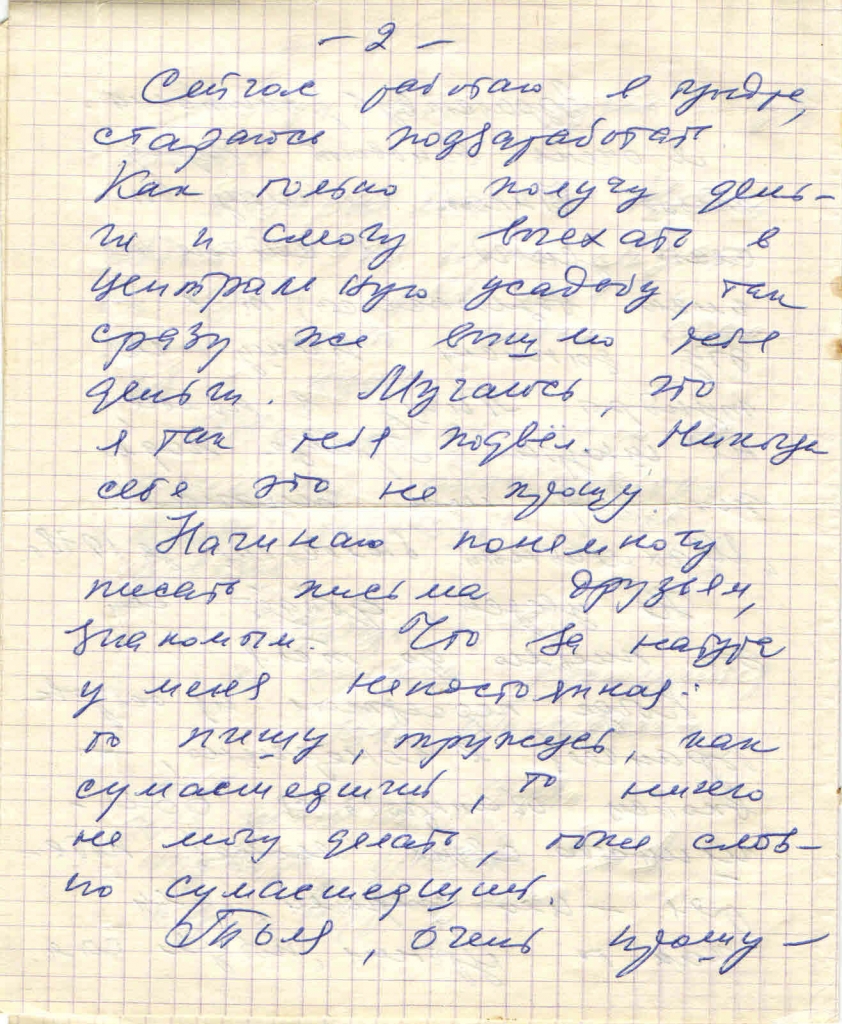 - 2 -
Сейчас работаю в тундре,
стараюсь подзаработать
Как только получу день-
ги и смогу выехать в
центральную усадьбу, так
сразу же вышлю тебе
деньги. Мучаюсь, что
я так тебя подвёл. Никогда
себе это не прощу.
Начинаю понемногу
писать письма друзьям,
знакомым. Что за натура
у меня непостоянная:
то пишу, тружусь, как
сумасшедший, то ничего
не могу делать, тоже слов-
но сумасшедший.
Толя, очень прошу -